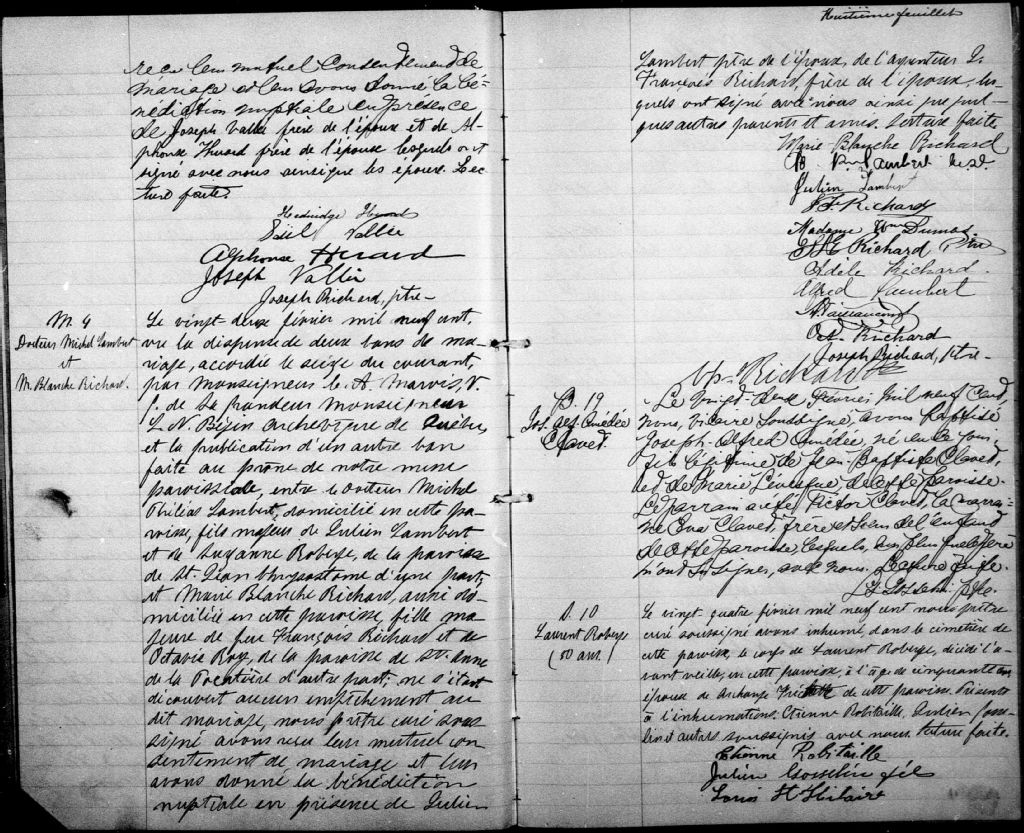 reçu leur mutuel consentement de
mariage et leur avons donné la bé-
nédiction nuptiale en présence
de Joseph Vallée frère de l'époux et de Al-
phonse Huard frère de l'épouse lesquels ont
signé avec nous ainsique les époux. Lec
ture faite.
Hedwidge Huard
Vallée
Alphonse Huard
Joseph Vallée
Joseph Richard, ptre-
M. 4
Docteur Michel Lambert
et
M. Blanche Richard.
Le vingt-deux février mil neuf cent,
vu la dispense de deux bans de ma-
riage, accordée le seize du courant,
par Monseigneur C. A. Marois, V.
G. de Sa Grandeur Monseigneur
L. N. Bégin archevêque de Québec,
et la publication d'un autre ban
faite au prône de notre messe
paroissiale, entre le Docteur Michel
Philias Lambert, domicilié en cette pa-
roisse, fils majeur de Julien Lambert
et de Suzanne Roberge, de la paroisse
de St. Jean Chrysostome d'une part;
et Marie Blanche Richard, aussi do-
miciliée en cette paroisse, fille ma-
jeure de feu François Richard et de
Octavie Roy, de la paroisse de Ste. Anne
de la Pocatière d'autre part; ne s'étant
découvert aucun empêchement au
dit mariage, nous prêtre curé sous
signé avons reçu leur mutuel con
sentement de mariage et leur
avons donné la bénédiction
nuptiale en présence de Julien
Huitième feuillet
Lambert père de l'époux, de
François Richard, frère de l'épouse, les-
quels ont signé avec nous ainsi que quel-
ques autres parents et amis. Lecture faite
Marie Blanche Richard
Lambert
Julien Lambert
Richard
Madame Wm Dumas
Richard
Adèle Richard.
Alfred Lambert
Vaillancourt
Oct. Richard
Joseph Richard, ptre-
Richard
B. 19
Jos. Alf. Amédée
Clavet
Le vingt-deux février, mil neuf cent,
nous, vicaire soussigné, avons baptisé
Joseph-Alfred Amédée, né en ce jour,
fils légitime de Jean Baptiste Clavet,
et de Marie Lévesque de cette paroisse.
Le parrain a été Victor Clavet, la marrai-
ne Eva Clavet, frère et soeur de l'enfant
de cette paroisse, lesquels, ainsi que le père
n'ont su signer, avec nous. Lecture faite.
S. 10
Laurent Roberge
(50 ans)
Le vingt quatre février mil neuf cent nous prêtre
curé soussigné avons inhumé, dans le cimetière de
cette paroisse, le corps de Laurent Roberge, décédé l'a-
vant veille, en cette paroisse, à l'âge de cinquante ans
époux de Archange de cette paroisse. Présents
à l'inhumation: Etienne Robitaille, Julien Gosse-
lin et autres soussignés avec nous. Lecture faite.
Etienne Robitaille
Julien Gosselin fils
Louis St Hilaire